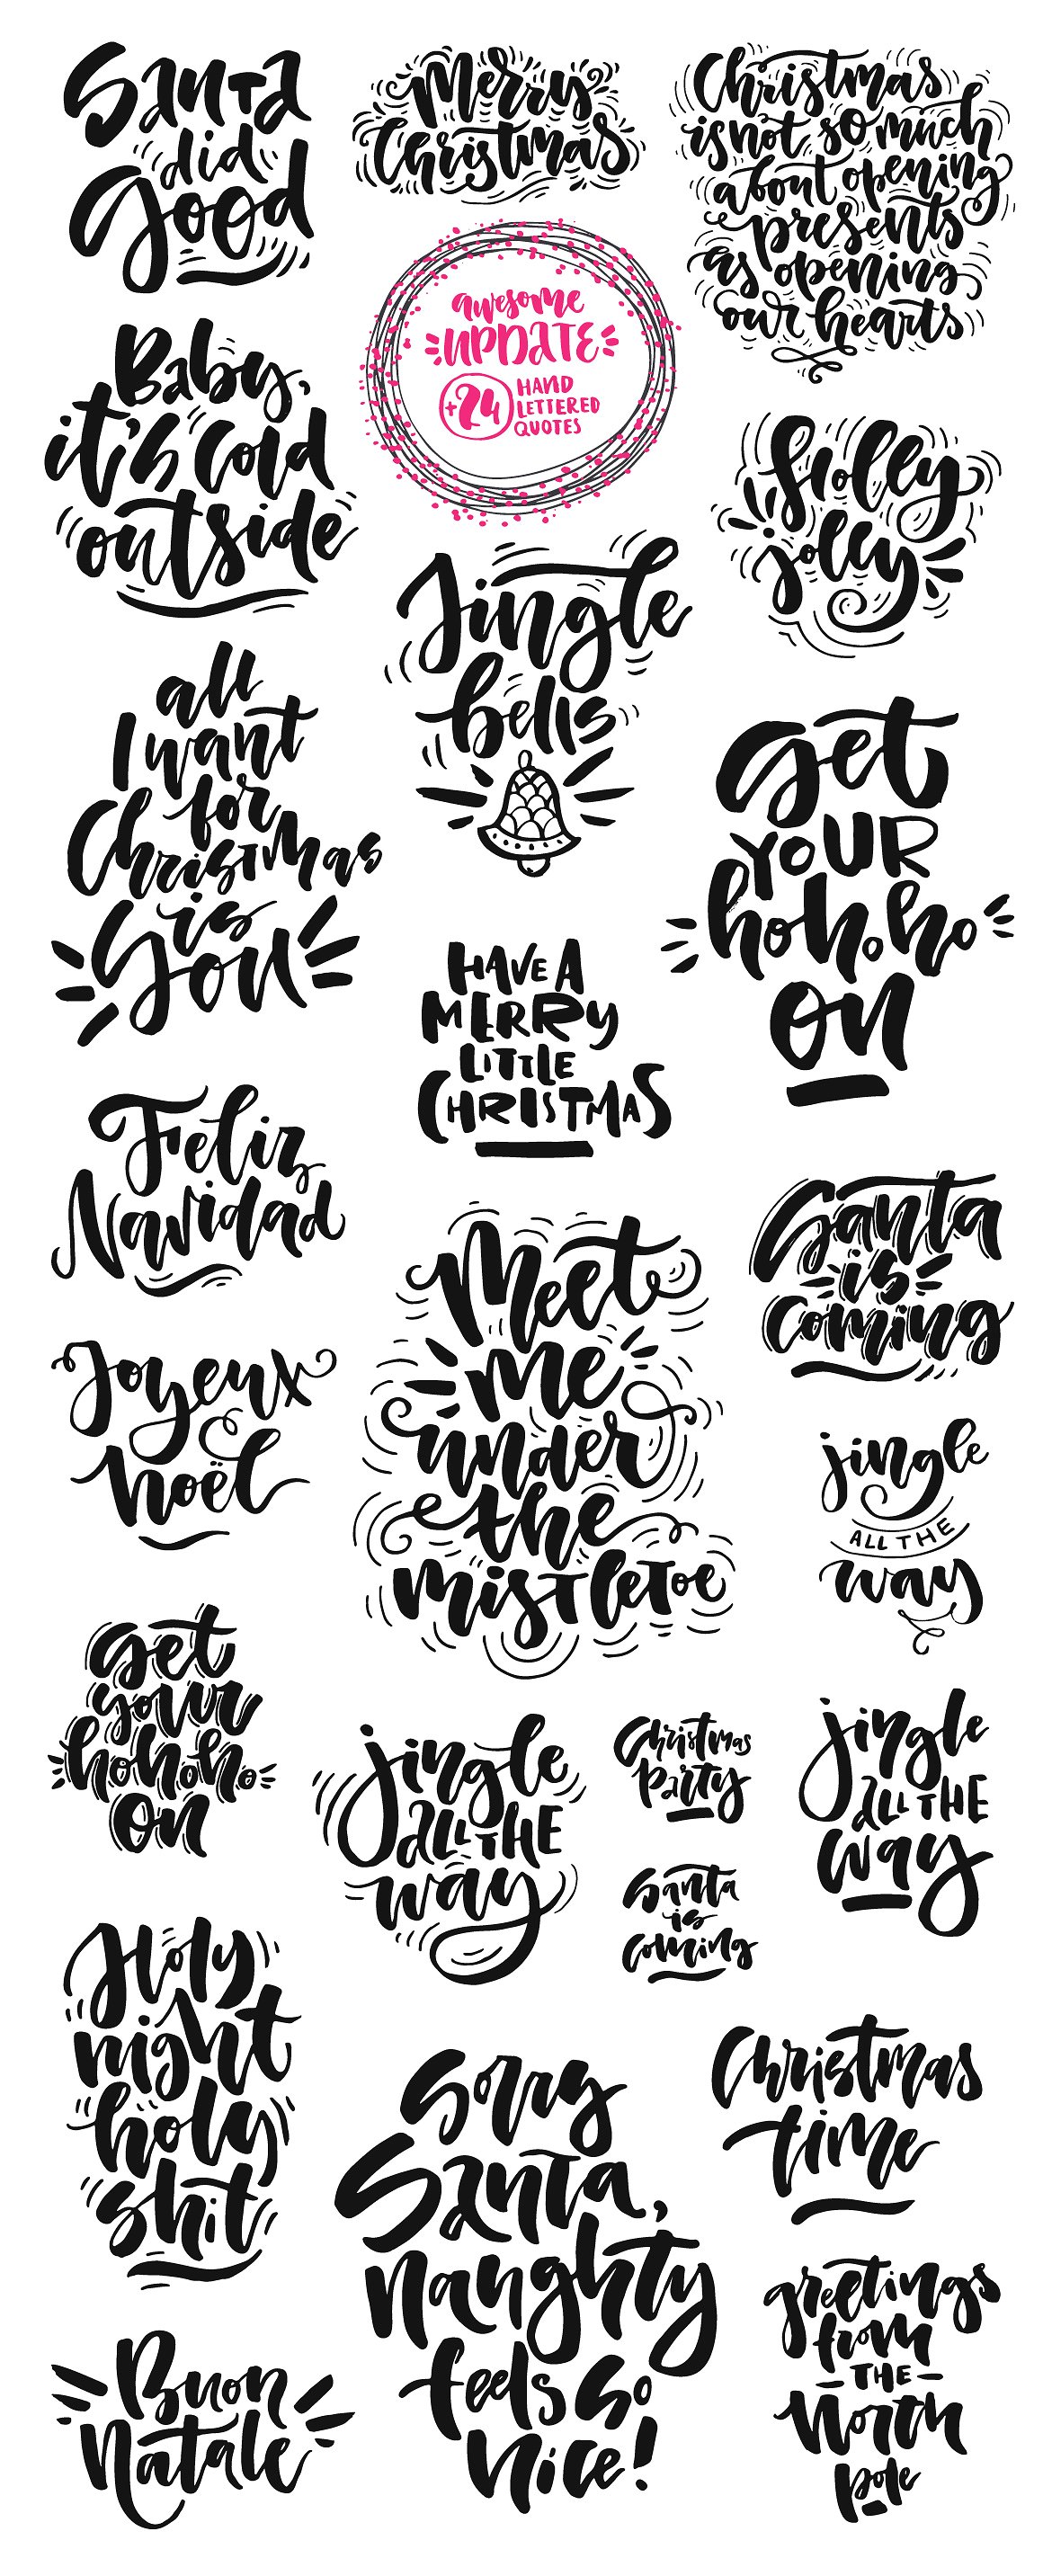 Santa
did
good
Merry
Christmas
Christmas
is not so much
about opening
presents
as opening
our hearts
awesome
UPDATE
+24
HAND
LETTERED
QUOTES
Baby,
it's cold
outside
Holly
jolly
Jingle
bells
all
I want
for
Christmas
is
you
get
YOUR
ho ho ho
on
HAVE A
MERRY
LITTLE
CHRISTMAS
Feliz
Navidad
Santa
is
coming
Meet
me
under
the
mistletoe
Joyeux
noël
jingle
ALL THE
way
get
your
ho ho ho
on
jingle
ALL THE
way
Christmas
party
jingle
ALL THE
way
Santa
is
coming
Holy
night
holy
shit
Sorry
Santa,
naughty
feels so
nice!
Christmas
time
greetings
from
THE
North
pole
Buon
Natale